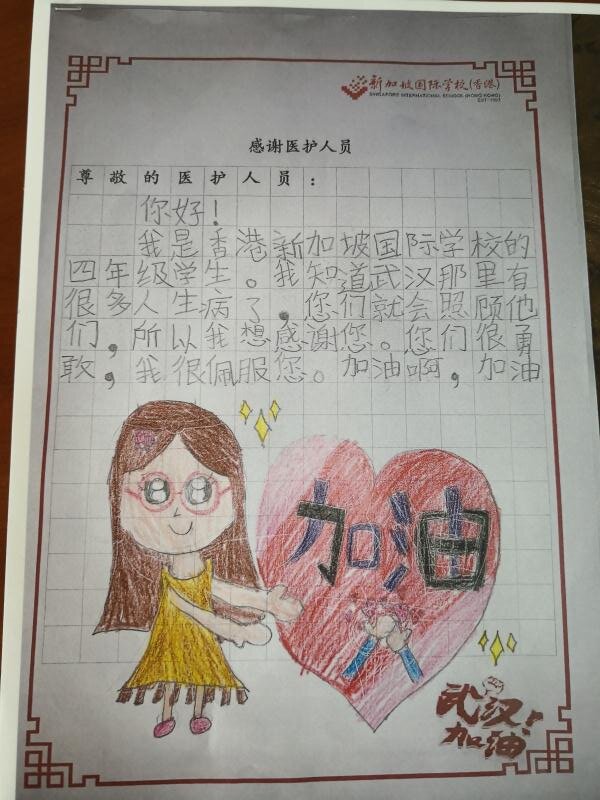 新加坡国际学校(香港)
SINGAPORE INTERNATIONAL SCHOOL (HONG KONG)
EST·1991
感谢医护人员
尊敬的医护人员：
你好！
我是香港新加坡国际学校的
四年级学生。我知道武汉那里有
很多人生病了，您们就会照顾他
们，所以我想感谢您。您们很勇
敢，我很佩服您。加油啊，加油
加油
武汉！
加油